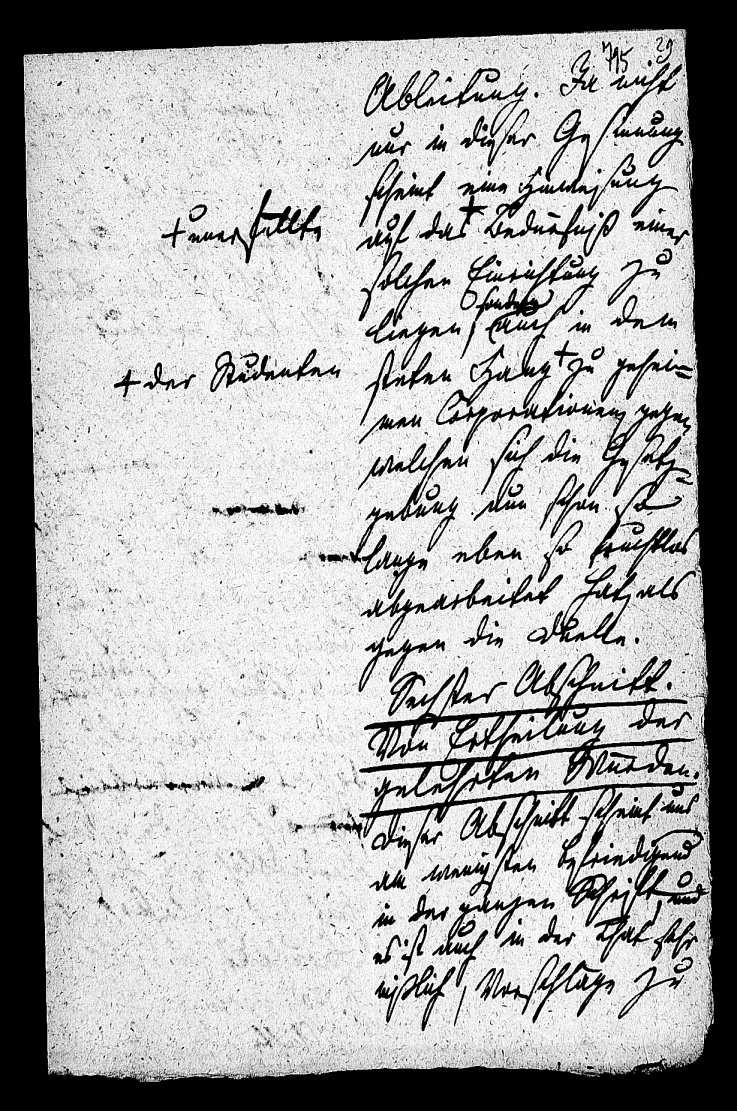 795 29
Ableitung. Ja nicht
nur in dieser Gesinnung
scheint eine Hinweisung
auf das + Bedürfniß einer
+ unerfüllte
solchen Einrichtung zu
liegen, sondern auch in dem
steten Hang + zu gehei=
+ der Studenten
men Corporationen, gegen
welchen sich die Gesetz=
gebung nun schon so
lange eben so fruchtlos
abgearbeitet hat, als
gegen die Duelle.
Sechster Abschnitt.
Von Ertheilung der
gelehrten Würden.
Dieser Abschnitt scheint uns
am wenigsten befriedigend
in der ganzen Schrift, und
es ist auch in der That sehr
mißlich, Vorschläge zu